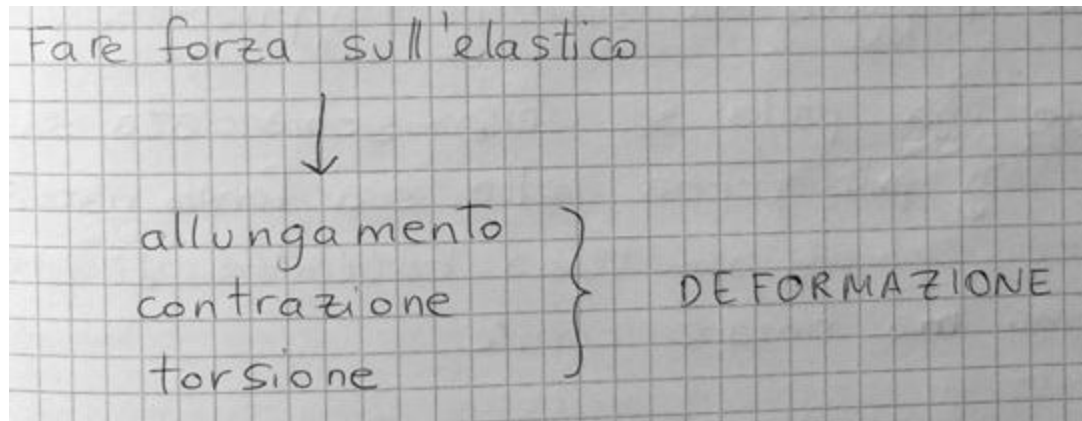 Fare forza sull'elastico
allungamento
contrazione
DEFORMAZIONE
torsione